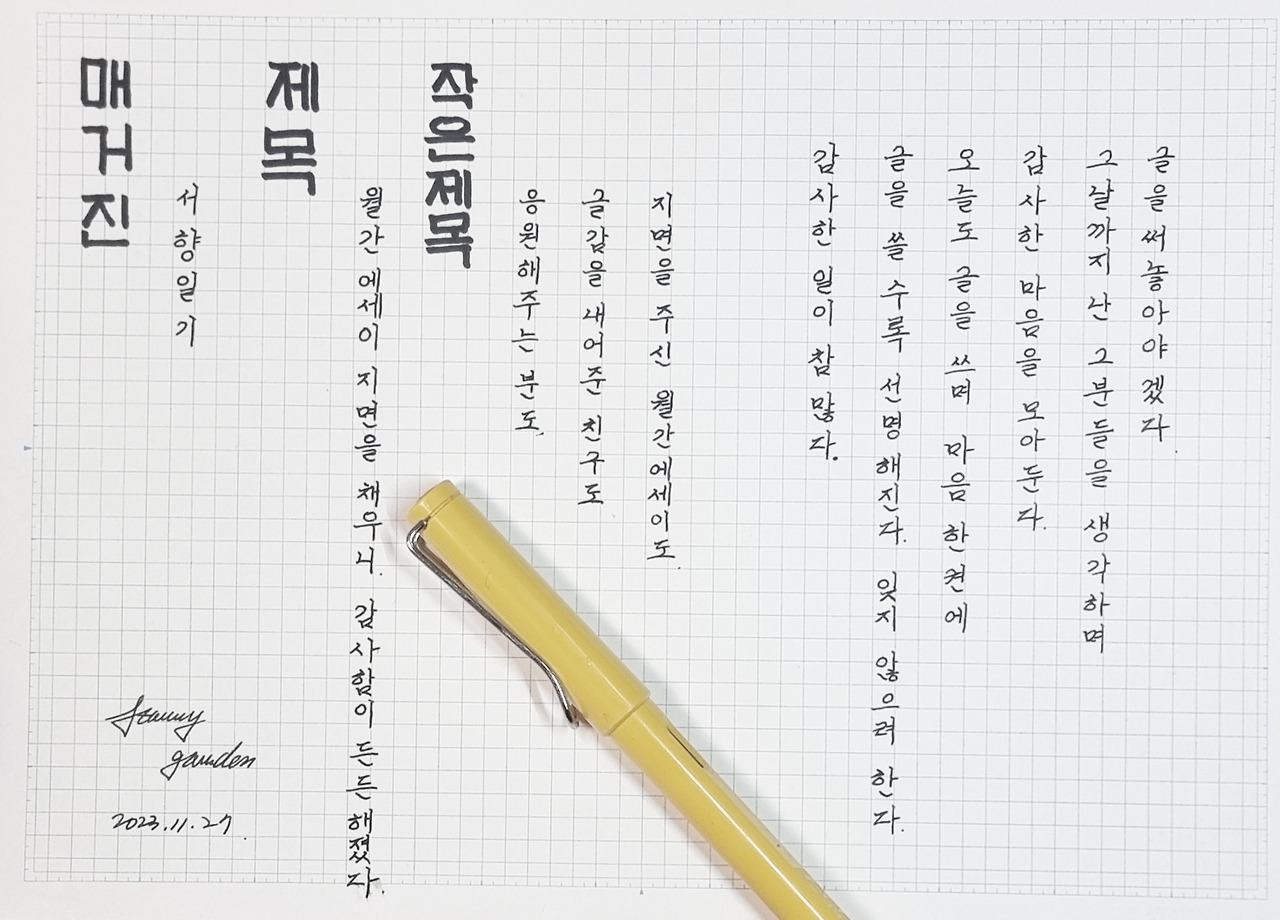 매거진
서향일기
제목
월간에세이 지면을 채우니. 감사함이 든든해졌다.
작은제목
응원해주는 분도.
글감을 내어준 친구도
지면을 주신 월간에세이도.
감사한 일이 참 많다.
글을 쓸 수록 선명해진다. 잊지 않으려 한다.
오늘도 글을 쓰며 마음 한켠에
감사한 마음을 모아둔다.
그날까지 난 그분들을 생각하며
글을 써놓아야겠다.
2023.11.27.